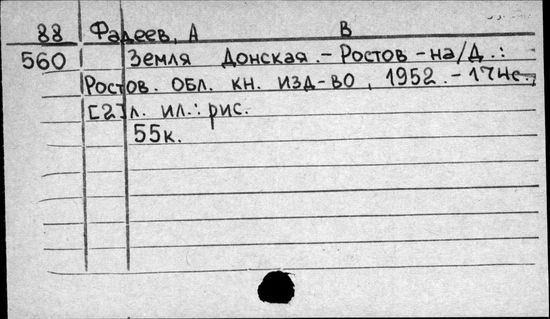 88 Фадеев, А В
560 Земля Донская. - Ростов-на/Д.:
Ростов. обл. кн. изд-во, 1952. - 174с.,
[2]л. ил.: рис.
55к.